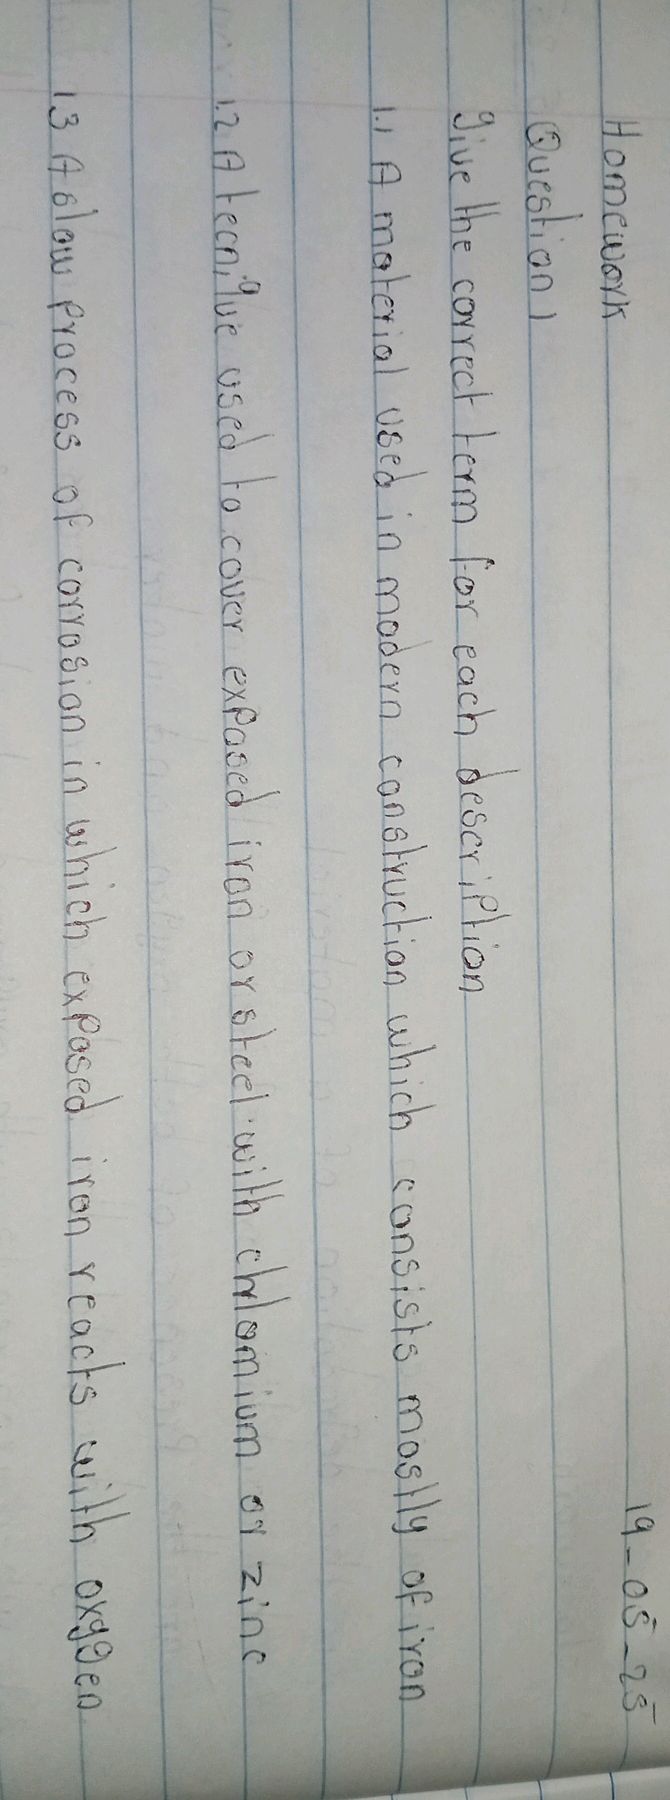 Homework 19-05-25
Question 1
give the correct term for each description
1.1 A material used in modern construction which consists mostly of iron
1.2 A tecnique used to cover exposed iron or steel with chlomium or zinc
1.3 A slow process of corrosion in which exposed iron reacts with oxygen